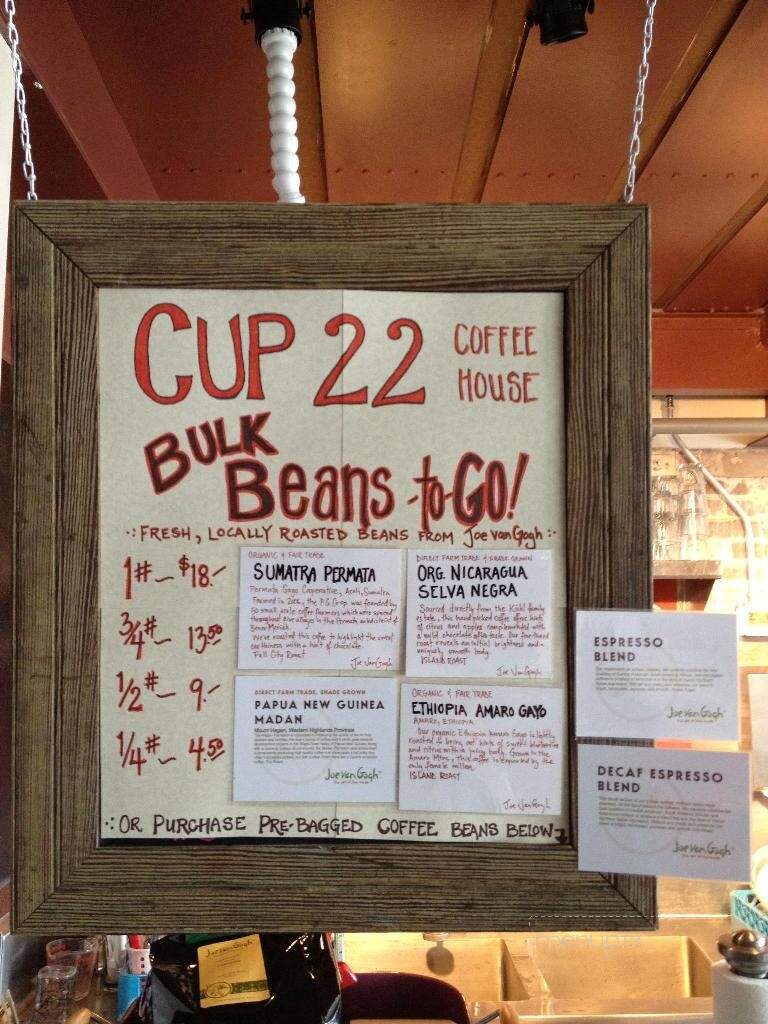 CUP 22 COFFEE HOUSE
BULK
Beans -to-GO!
FRESH, LOCALLY ROASTED BEANS FROM Joe van Gogh
1# ~ $18.-
3/4# ~ 13.50
1/2# ~ 9.-
1/4# ~ 4.50
ORGANIC & FAIR TRADE
SUMATRA PERMATA
Permata Gayo Cooperative, Aceh, Sumatra
We've roasted this coffee to highlight the sweet
earthiness with a hint of chocolate.
Full City Roast
Joe Van Gogh
DIRECT FARM TRADE & SHADE GROWN
ORG. NICARAGUA
SELVA NEGRA
Sourced directly from the Kühl family
estate, this hand picked coffee offers hints
of citrus and apples complemented with
a mild chocolate aftertaste. Our fine-tuned
roast reveals an initial brightness and a
uniquely smooth body.
ISLAND ROAST
Joe Van Gogh
DIRECT FARM TRADE, SHADE GROWN
PAPUA NEW GUINEA
MADAN
Mount Hagen, Western Highlands Province
Joe Van Gogh
ORGANIC & FAIR TRADE
ETHIOPIA AMARO GAYO
AMARO, ETHIOPIA
Our organic Ethiopian Amaro Gayo is lightly
roasted to bring out hints of sweet blueberries
and citrus with a juicy body. Grown in the
Amaro Mtns, this coffee is exported by the
only female miller.
ISLAND ROAST
Joe Van Gogh
OR PURCHASE PRE-BAGGED COFFEE BEANS BELOW
ESPRESSO
BLEND
Joe Van Gogh
DECAF ESPRESSO
BLEND
Joe Van Gogh
Joe Van Gogh